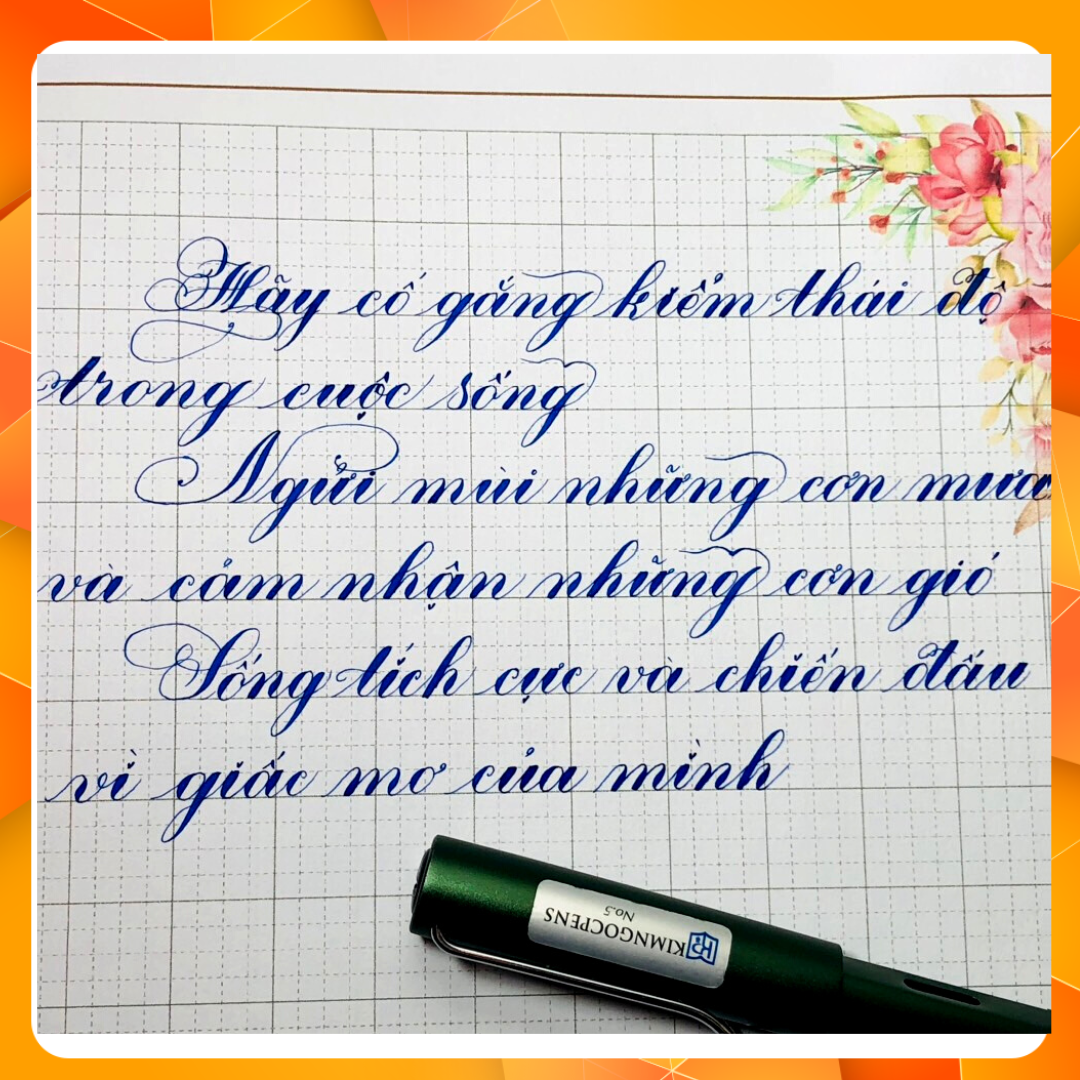 Hãy cố gắng kiểm thái độ
trong cuộc sống
Ngửi mùi những cơn mưa
và cảm nhận những cơn gió
Sống tích cực và chiến đấu
vì giấc mơ của mình
KIMNGOCPENS
No.5